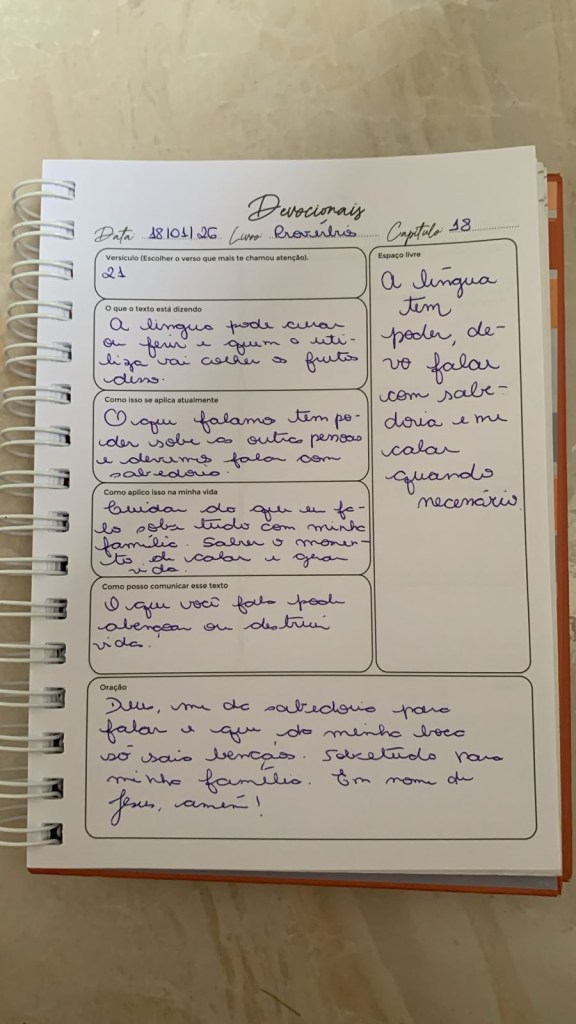 Devocionais
Data 18/01/26 Livro Provérbios Capítulo 18
Versículo (Escolher o verso que mais te chamou atenção).
21
O que o texto está dizendo
A língua pode curar
ou ferir e quem a uti-
liza vai colher os frutos
disso.
Como isso se aplica atualmente
O que falamo tem po-
der sobe as outras pessoas
e devemos falar com
sabedoria.
Como aplico isso na minha vida
Cuidar do que eu fa-
lo sobe tudo com minha
família. Saber o momen-
to de calar e gerar
vida.
Como posso comunicar esse texto
O que você fala pode
abençoar ou destruir
vida.
Espaço livre
A língua
tem
poder, de-
vo falar
com sabe-
doria e me
calar
quando
necessário.
Oração
Deus, me da sabedoria para
falar e que da minha boca
só saia benção. Sobretudo para
minha família. Em nome de
Jesus, amém!